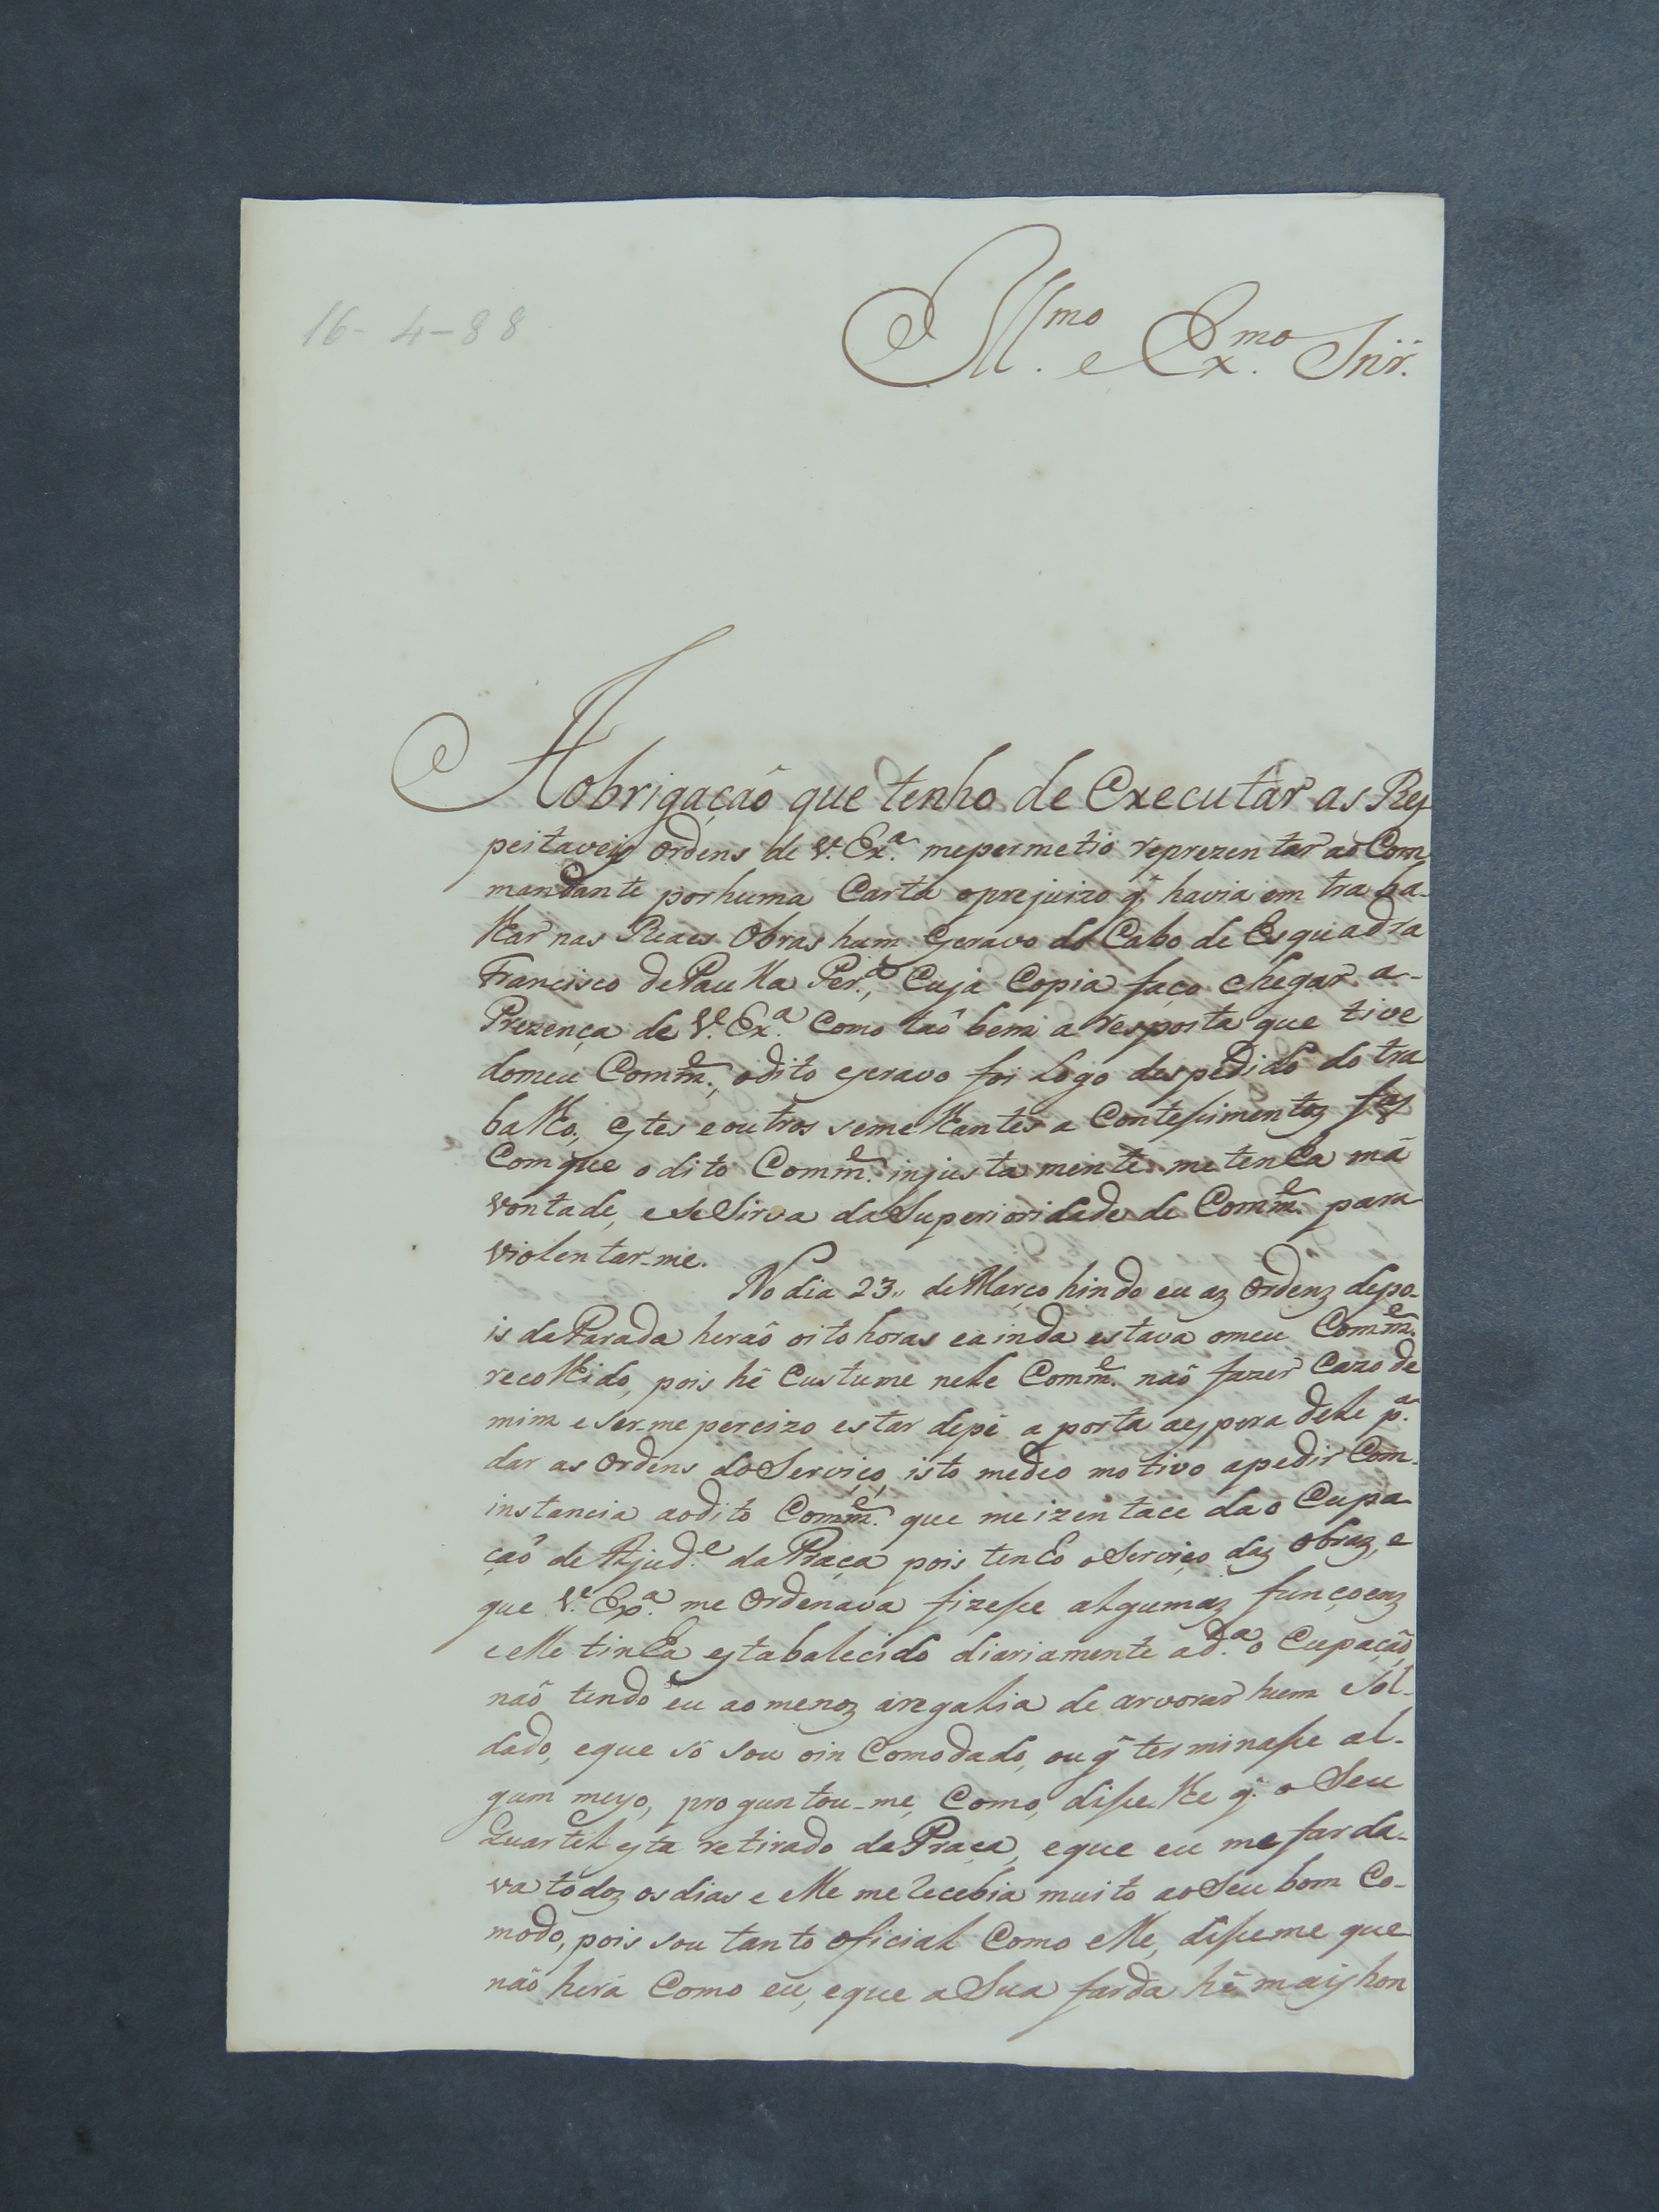 16-4-88
Illmo. e Exmo. Snr.
A obrigação que tenho de Executar as Res
peitaveis Ordens de V. Exa. mepermetio reprezentar ao Com
mandante porhuma Carta oprejuizo q̃ havia em traba-
lhar nas Reaes Obras hum escravo do Cabo de Esquadra
Francisco dePaulla Per.ª, Cuja Copia faço chegar a-
Prezença de V. Exa. Como taõ bem a resposta que tive
domeu Commẽ., odito escravo foi Logo despedido do tra
balho, estes eoutros semelhantes a Contessimentos faz
Comque o dito Commẽ. injustamente metenha má
vontade, eseSirva daSuperioridade de Commẽ. para
violentar-me.
No dia 23,, de Março hindo eu as Ordens depo-
is daParada heraõ oito horas eainda estava omeu Commẽ.
recolhido, pois hé Custume nele Commẽ. naõ fazer Cazo de
mim e ser-me percizo estar depé a porta aespera dele p.ª
dar as Ordens doServiço, isto medeo motivo apedir Com-
instancia aodito Commẽ. que meizentace dao Cupa-
çaõ de Ajud.e daPraça pois tenho oServiço das obras, e
que V. Exa. me Ordenava fizesse algumas funçoens
eelle tinha estabalecido diariamente ad.ª o Cupação,
naõ tendo eu ao menos aregalia de arvorar hum Sol-
dado, eque só sou oin Comodado, ou q̃ terminasse al-
gum meyo, proguntou-me, Como, disse lhe q̃. o Seu
Quartel esta retirado daPraça, eque eu me farda-
va todos osdias e elle me recebia muito aoSeu bom Co-
modo, pois sou tanto oficial Como elle, disseme que
não hera Como eu, eque a Sua farda hé mais hon